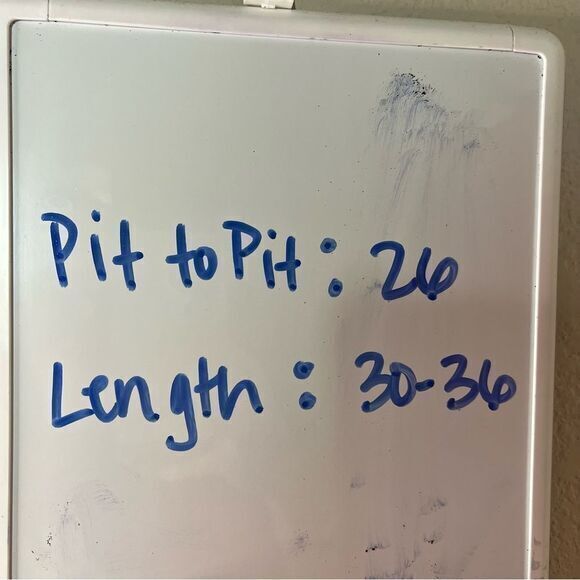 Pit to Pit: 26
Length: 30-36